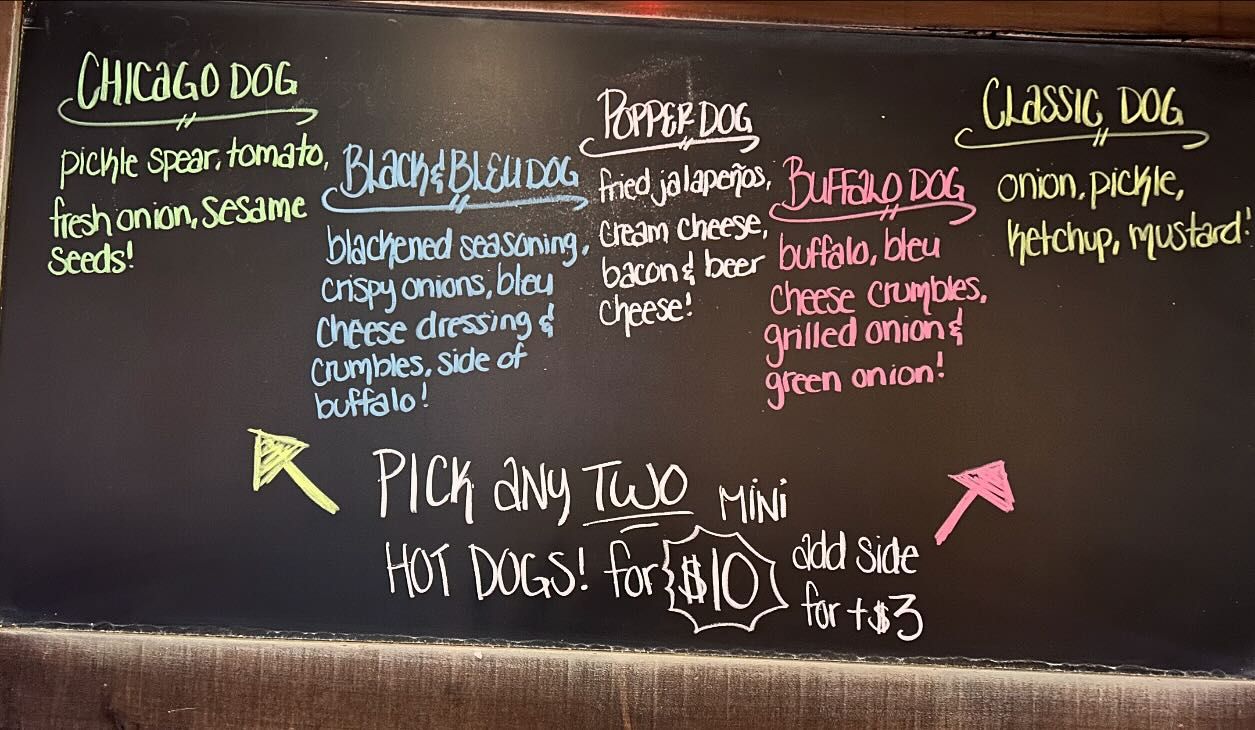 CHICAGO DOG
pickle spear, tomato,
fresh onion, sesame
seeds!
BLACK & BLEU DOG
blackened seasoning,
crispy onions, bleu
cheese dressing &
crumbles, side of
buffalo!
POPPER DOG
fried jalapeños,
cream cheese,
bacon & beer
cheese!
BUFFALO DOG
buffalo, bleu
cheese crumbles,
grilled onion &
green onion!
CLASSIC DOG
onion, pickle,
ketchup, mustard!
PICK ANY TWO MINI
HOT DOGS! for $10
add side
for +$3